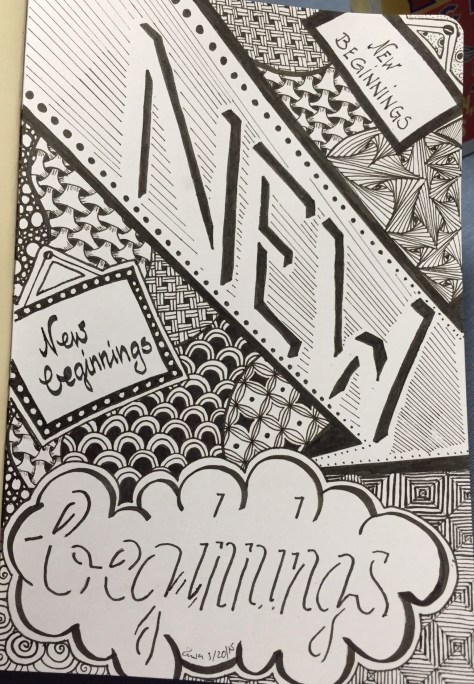 NEW
BEGINNINGS
NEW
New
beginnings
beginnings